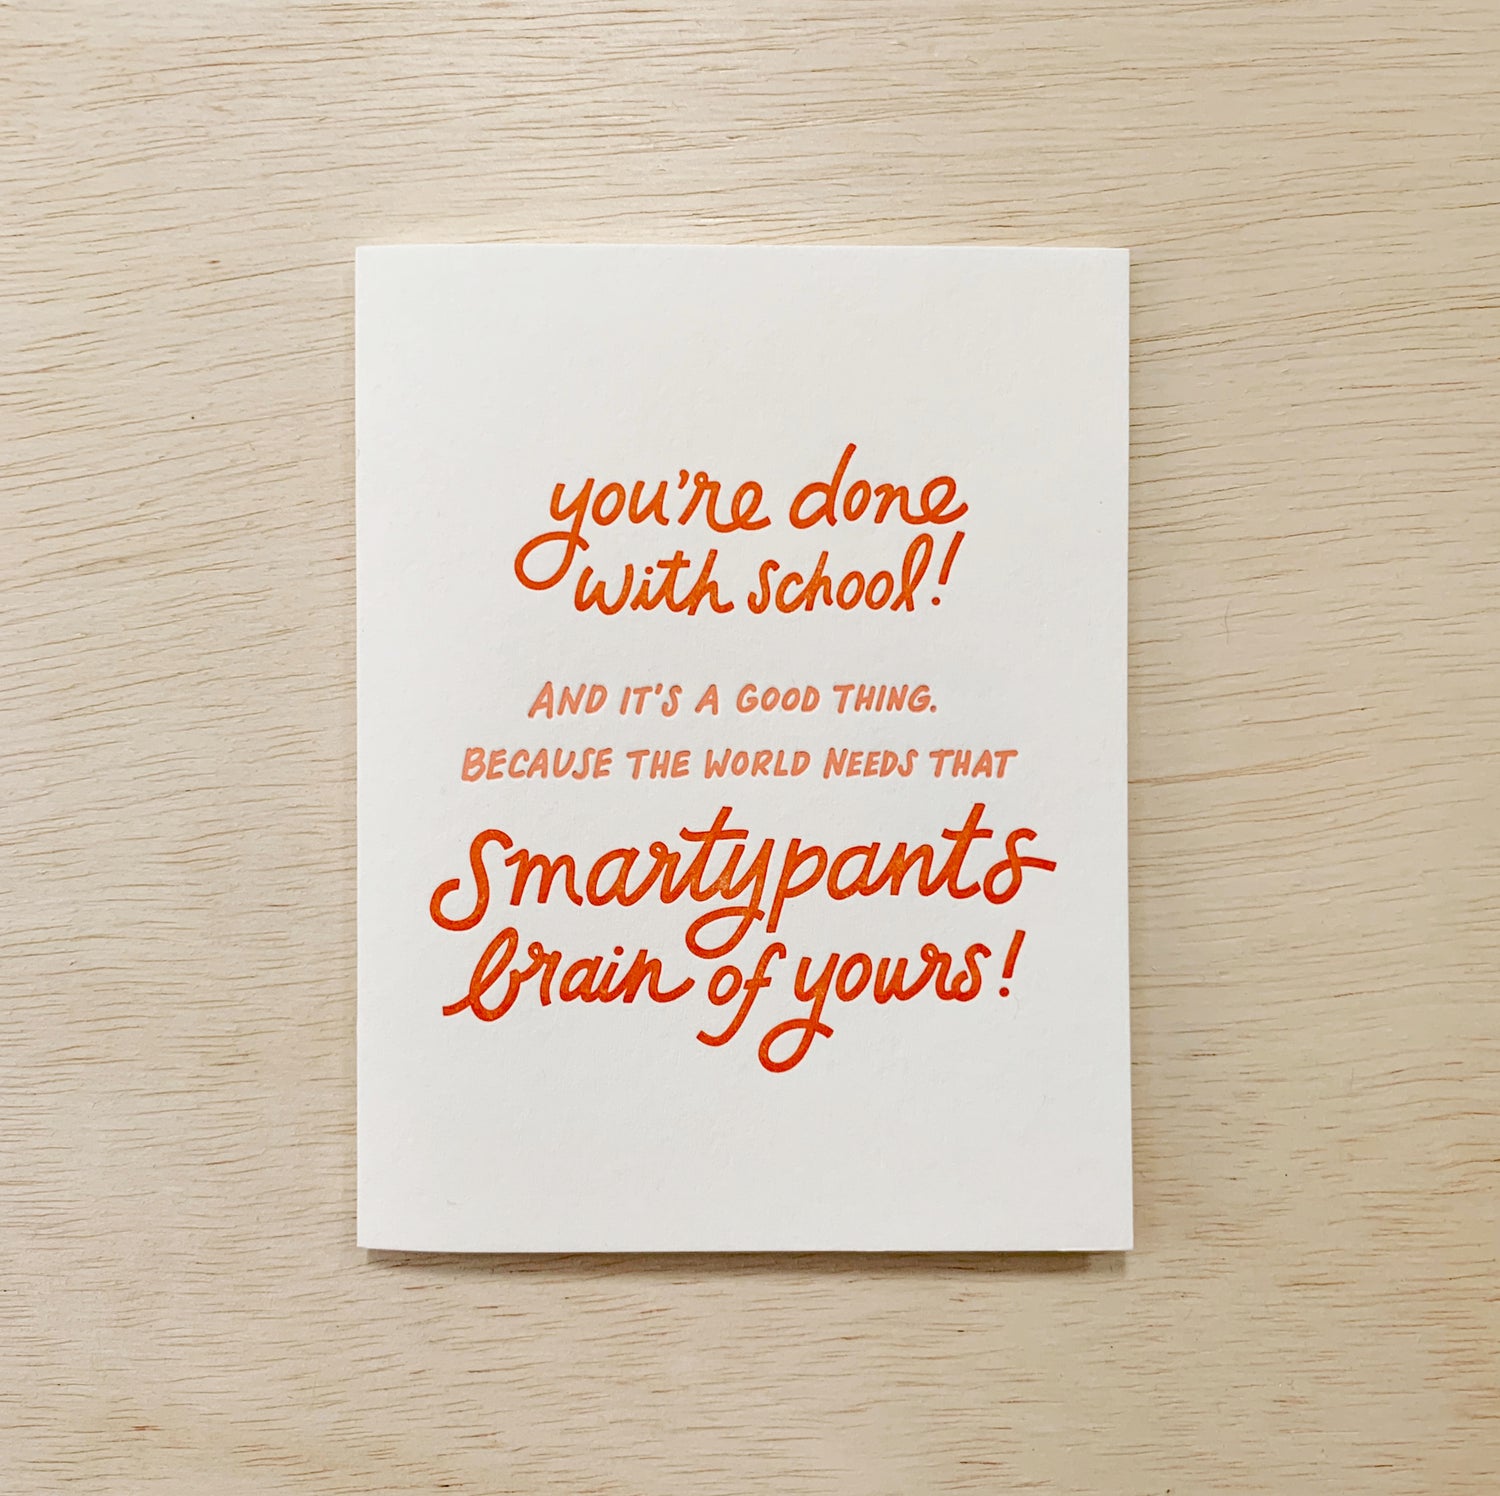 you're done
with school!
AND IT'S A GOOD THING.
BECAUSE THE WORLD NEEDS THAT
Smartypants
brain of yours!